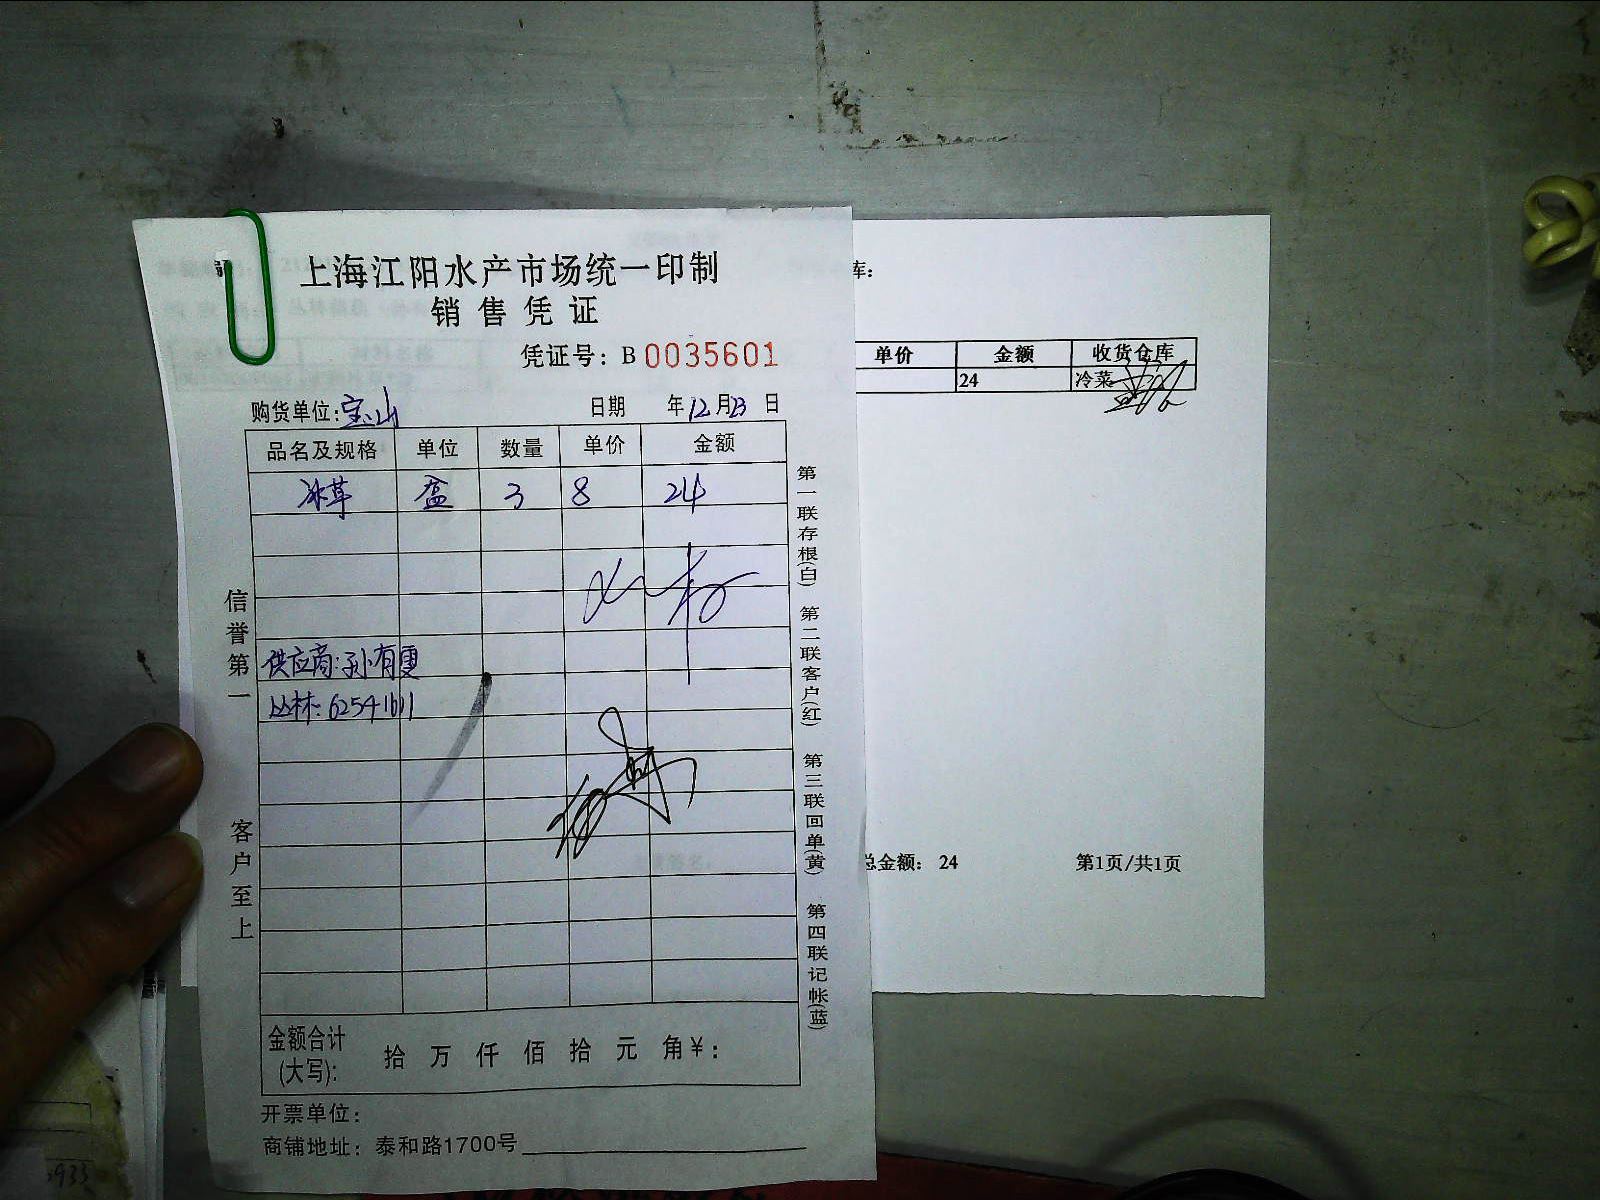 上海江阳水产市场统一印制
销售凭证
凭证号：B 0035601
购货单位：宝山 日期 年12月23日
品名及规格 单位 数量 单价 金额
冰草 盒 3 8 24
供应商：孙有雯
丛林：62541611
金额合计(大写)： 拾 万 仟 佰 拾 元 角 ¥：
开票单位：
商铺地址：泰和路1700号
信誉第一
客户至上
第一联存根(白)
第二联客户(红)
第三联回单(黄)
第四联记帐(蓝)
库：
单价 金额 收货仓库
24 冷菜
总金额： 24 第1页/共1页